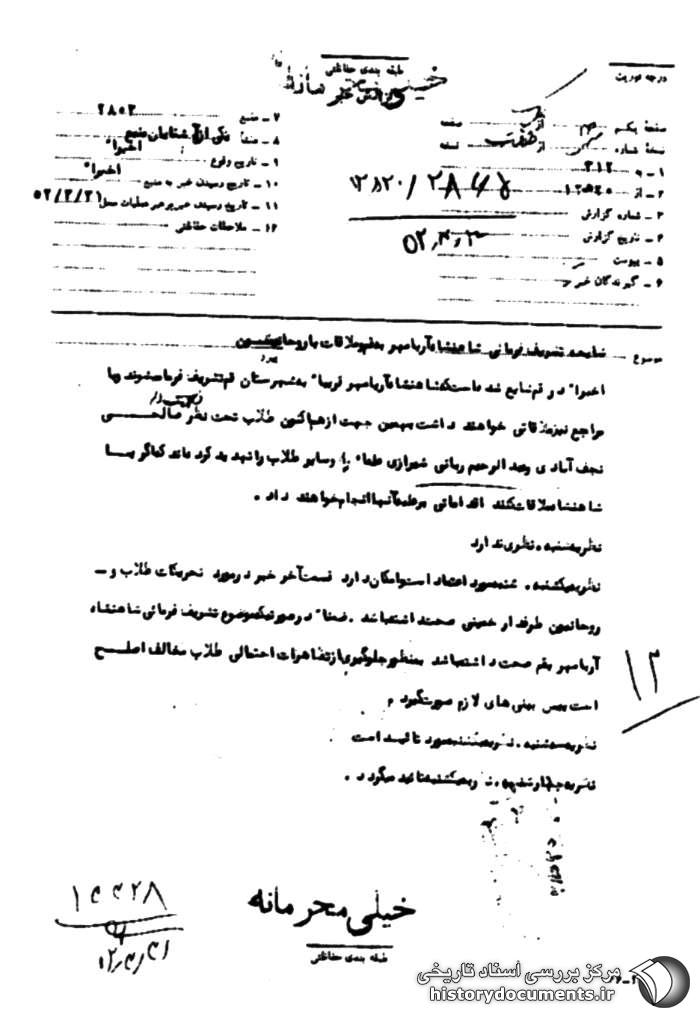 طبقه بندی حفاظتی
خیلی محرمانه
گزارش خبر
درجه فوریت
صفحه یکم از صفحه
نسخه شماره از هفت نسخه
۱ - به ۳۱۲
۲ - از
۳ - شماره گزارش
۴ - تاریخ گزارش
۵ - پیوست
۶ - گیرندگان خبر
۷ - منبع ۲۸۵۲
۸ - منشأ یکی از آشنایان منبع
۹ - تاریخ وقوع اخیراً
۱۰ - تاریخ رسیدن خبر به منبع اخیراً
۱۱ - تاریخ رسیدن خبر برهبر عملیات محل ۵۲/۳/۳۱
۱۲ - ملاحظات حفاظتی
موضوع شایعه تشریف فرمائی شاهنشاه آریامهر بقم و ملاقات با روحانیون
اخیراً در قم شایع شده است که شاهنشاه آریامهر قریباً به شهرستان قم تشریف فرما میشوند و با
مراجع نیز ملاقاتی خواهند داشت بهمین جهت از هم اکنون طلاب تحت نظر صالحی
نجف آبادی و عبدالرحیم ربانی شیرازی علماء را و سایر طلاب را تهدید کرده اند که اگر با
شاهنشاه ملاقات کنند اقداماتی بر علیه آنها انجام خواهند داد .
نظریه شنبه . نظری ندارد
نظریه یکشنبه . شنبه مورد اعتماد است و امکان دارد قسمت آخر خبر در مورد تحریکات طلاب و
روحانیون طرفدار خمینی صحت داشته باشد . ضمناً در صورتیکه موضوع تشریف فرمائی شاهنشاه
آریامهر بقم صحت داشته باشد بمنظور جلوگیری از تظاهرات احتمالی طلاب مخالف اصلح
است پیش بینی های لازم صورت گیرد .
نظریه سه شنبه . نظریه یکشنبه مورد تائید است
نظریه چهارشنبه . نظریه سه شنبه تائید میگردد .
۱۲
خیلی محرمانه
طبقه بندی حفاظتی
مرکز بررسی اسناد تاریخی
historydocuments.ir